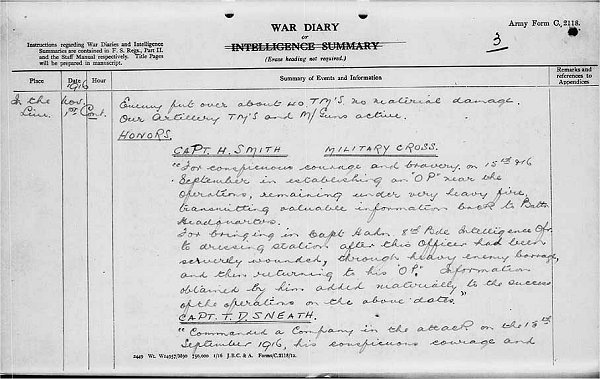 WAR DIARY
or
INTELLIGENCE SUMMARY
(Erase heading not required.)
Army Form C. 2118.
3
Instructions regarding War Diaries and Intelligence
Summaries are contained in F. S. Regs., Part II.
and the Staff Manual respectively. Title Pages
will be prepared in manuscript.
Place
Date
Hour
Summary of Events and Information
Remarks and
references to
Appendices
1916
In the
Line.
Nov.
1st Cont.
Enemy put over about 40 TM'S. no material damage.
Our Artillery TM's and M/Guns active.
HONORS.
CAPT. H. SMITH MILITARY CROSS.
"For conspicuous courage and bravery, on 15th 916
September in establishing an "OP" near the
operations, remaining under very heavy fire,
transmitting valuable information back to Battn
Headquarters.
For bringing in Capt Hahn 8th Bde Intelligence Ofr.
to dressing station after this Officer had been
severely wounded, through heavy enemy barrage,
and then returning to his "OP". Information
obtained by him added materially to the success
of the operations on the above dates."
CAPT. T. D. SNEATH.
"Commanded a Company in the attack on the 15th
September 1916, his conspicuous courage and
2449 Wt. W14957/M90 750,000 1/16 J.B.C. & A. Forms/C.2118/12.